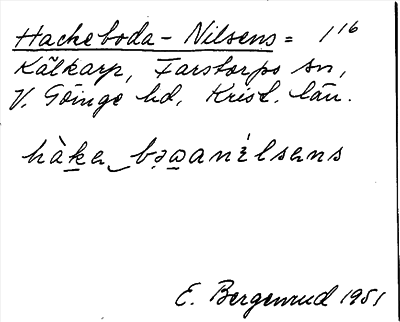 Hackeboda-Nilsens = 1 16
Kälkarp, Farstorps sn,
V. Göinge hd, Krist. län.
hàkeu‿bəwanílsens
E. Bergenrud 1951